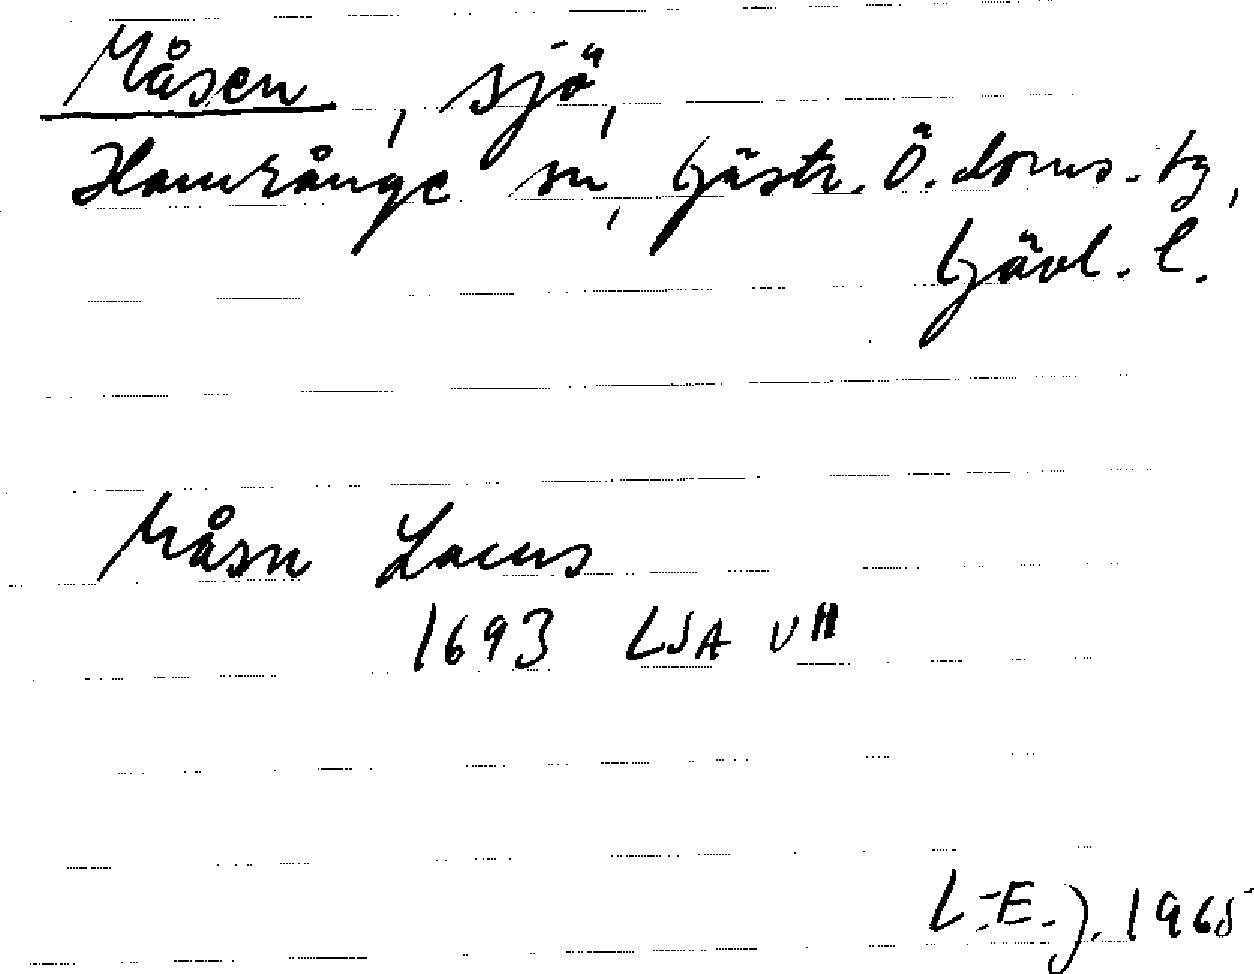 Måsen, sjö,
Hamrånge sn, Gästr. Ö. doms. tg,
Gävl. l.
Måsn Lacus
1693 LSA V11
L-E. J. 1965